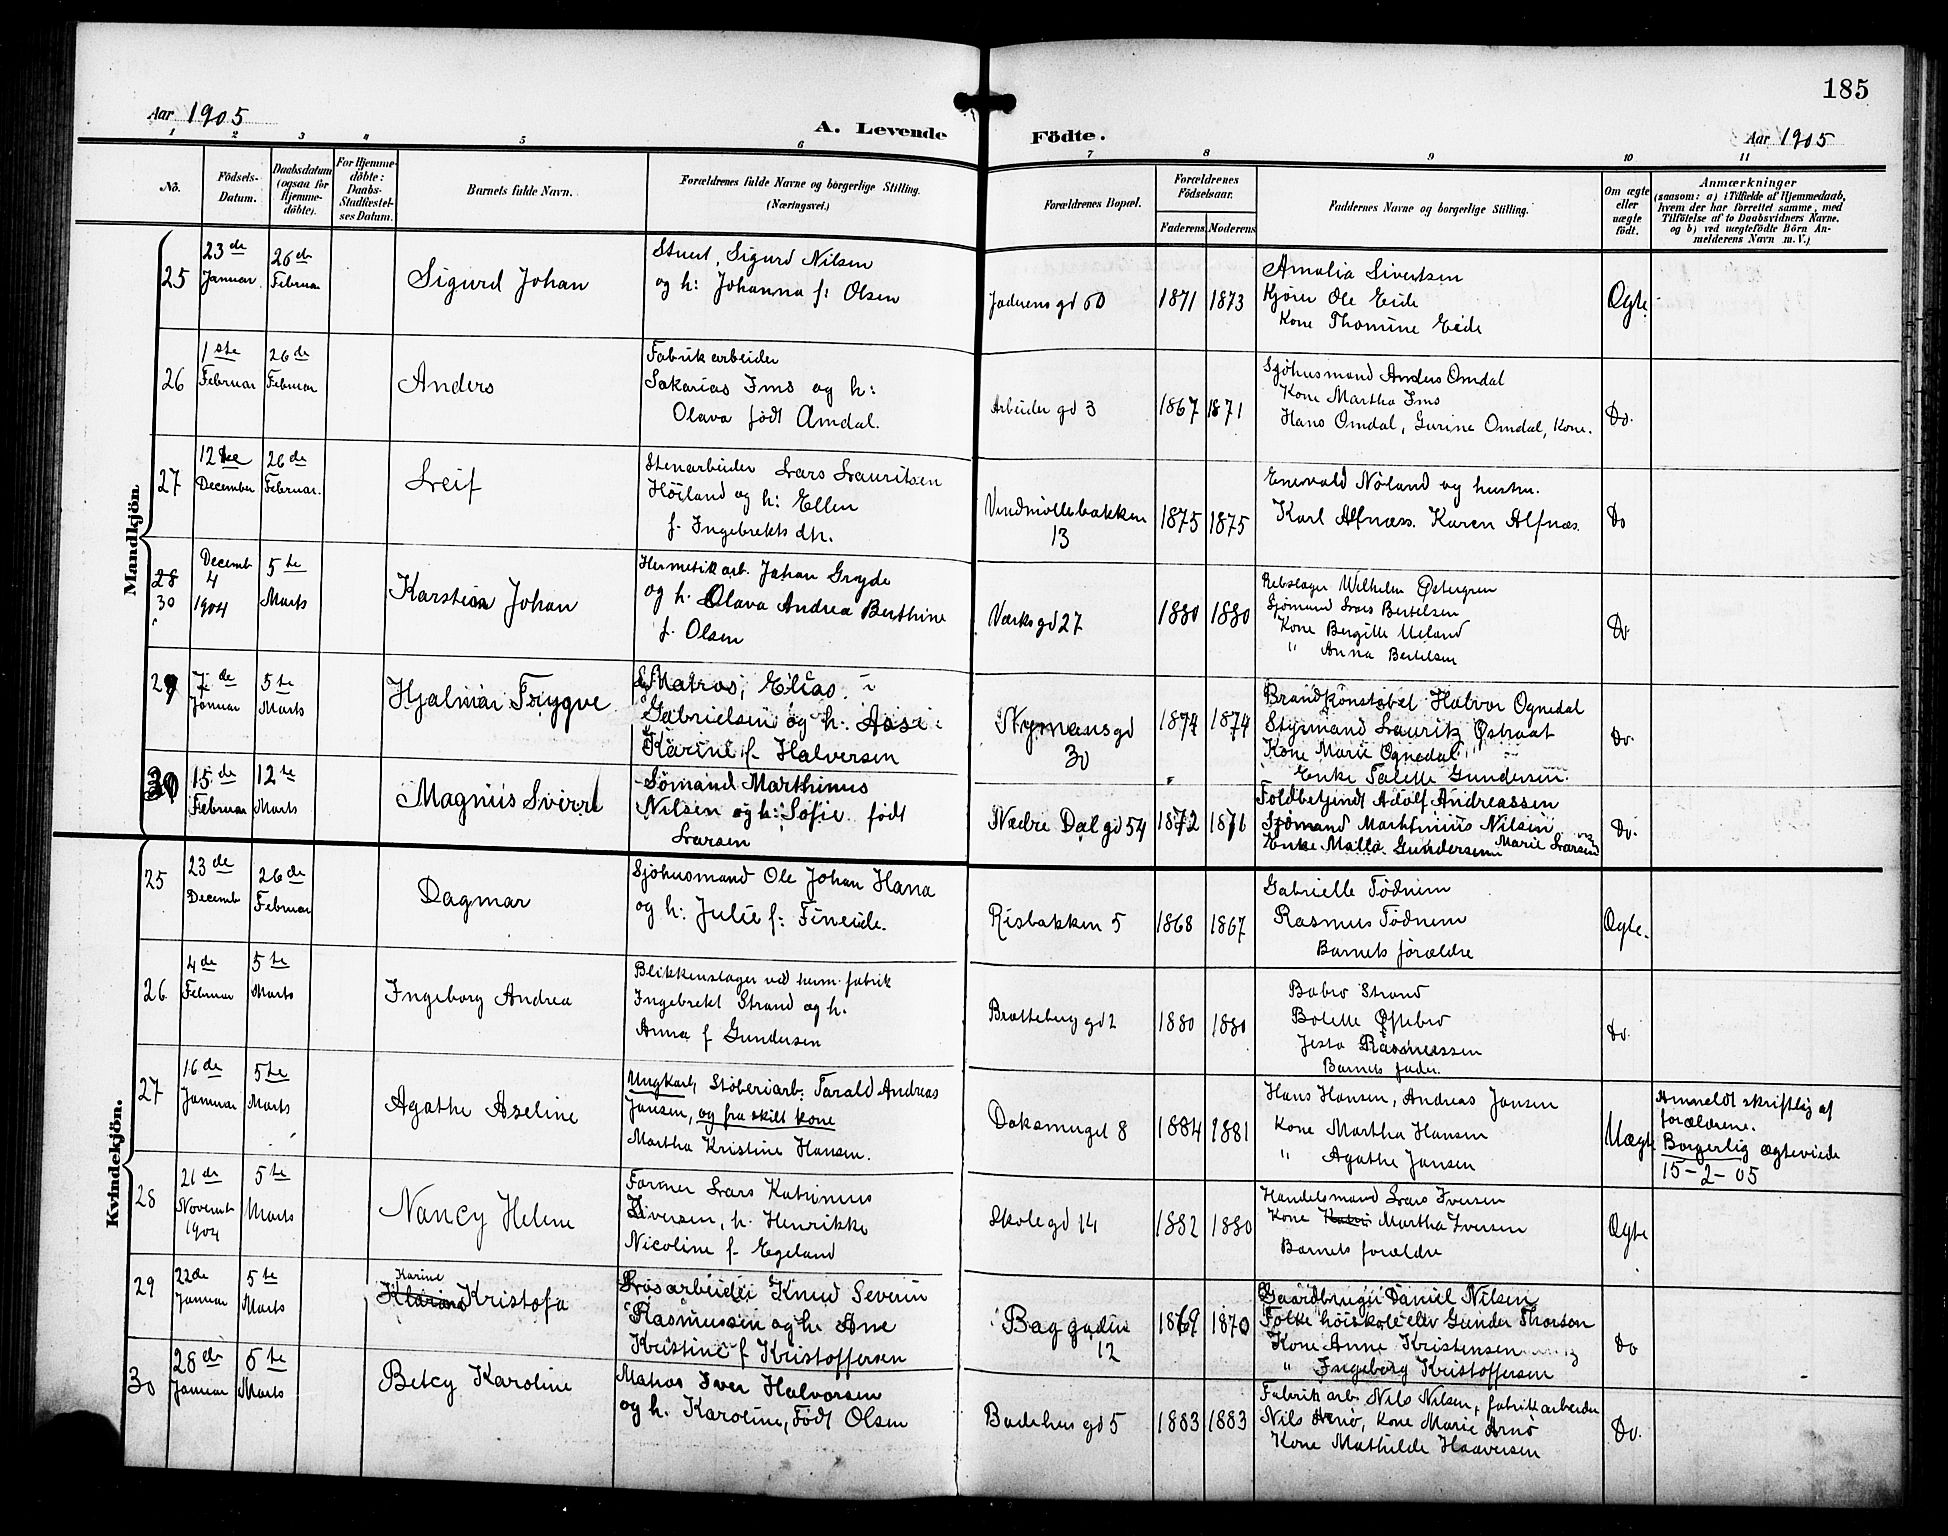 185
Aar 1905
A. Levende Födte.
Aar 1905
1 2 3 4 5 6 7 8 9 10 11
No.
Födsels-
Datum.
Daabsdatum
(ogsaa for
Hjemme-
döbte).
For Hjemme-
döbte:
Daabs-
Stadfæstel-
ses Datum.
Barnets fulde Navn.
Forældrenes fulde Navne og borgerlige Stilling.
(Næringsvei.)
Forældrenes Bopæl.
Forældrenes
Födselsaar.
Faderens Moderens
Faddernes Navne og borgerlige Stilling.
Om ægte
eller
uægte
født.
Anmærkninger
(saasom: a) i Tilfælde af Hjemmedaab,
hvem der har forrettet samme, med
Tilföielse af to Daabsvidners Navne.
og b) ved uægtefödte Börn An-
melderens Navn m. V.)
Mandkjön
25
23de
Januar
26de
Februar
Sigurd Johan
Sigurd Nilsen
og h: Johanna f: Olsen
Jaderens gd 60
1871 1873
Amalia Sivertsen
Kjører Ole Eide
Kone Thomine Eide
Ægte.
26
1ste
Februar
26de
Februar
Anders
Fabrikarbeider
Sakarias Ims og h:
Olava født Omdal.
Arbeider gd 3
1867 1871
Sjøhusmand Anders Omdal
Kone Martha Ims
Hans Omdal, Gurine Omdal, Kone.
Do.
27
12te
December
26de
Februar.
Leif
Stenarbeider Lars Lauritsen
Høiland og h: Ellen
f. Ingebrekts dtr.
Vindmøllebakken
13
1875 1875
Enevald Nöland og hustru.
Karl Alfnæss. Karen Alfnæs.
Do
28
30
Decemb
4
1904
5te
Marts
Karstien Johan
Hermetikarb. Johan Gryde
og h. Olava Andrea Berthine
f. Olsen
Værks gd 27
1880 1880
Rebslager Wilhelm Østergren
Sjømand Lars Bertelsen
Kone Bergitte Ueland
" Anna Bertelsen
Do
29
7de
Januar
5te
Marts
Hjalmar Trygve
Matros, Elias
Gabrielsen og h. Aase
Karine f. Halversen
Nymansgd
30
1874 1874
Brandkonstabel Halvor Ognedal
Styrmand Lauritz Østraat
Kone Marie Ognedal
Enke Talette Gundersen.
Do.
30
15de
Februar
12te
Marts
Magnus Sverre
Sømand Marthinus
Nilsen og h: Sofie født
Larsen
Nedre Dal gd 54
1872 1876
Toldbetjendt Adolf Andreassen
Sjømand Marthinius Nilsen
Enke Malla. Gundersen Marie Larsen
Do.
Kvindekjön.
25
23de
Decemb
26de
Februar
Dagmar
Sjøhusmand Ole Johan Hana
og h: Julie f: Tineide.
Risbakken 5
1868 1867
Gabrielle Tødnem
Rasmus Tødnem
Barnets forældre
Ægte.
26
4de
Februar
5te
Marts
Ingeborg Andrea
Blikkenslager ved herm. fabrik
Ingebrekt Strand og h.
Anna f Gundersen
Brattebergg d 2
1880 1880
Babro Strand
Bolette Øftebro
Jesta Rasmussen
Barnets fader.
Do.
27
16de
Januar
5te
Marts
Agathe Aseline
Ungkarl, Støberiarb: Tarald Andreas
Jansen, og fra skilt kone
Martha Kristine Hansen.
Doksmuget 8
1884 1881
Hans Hansen, Andreas Jansen
Kone Martha Hansen
" Agathe Jansen
Uægte
Anmeldt skriftlig af
forældrene.
Borgerlig ægteviede
15-2-05
28
21de
Novemb
1904
5te
Marts
Nancy Helene
Former Lars Katrinius
Iversen, h. Henrikke
Nicoline f. Egeland
Skole gd 14
1882 1880
Handelsmand Lars Iversen
Kone Martha Iversen
Barnets forældre
Ægte
29
22de
Januar
5te
Marts
Karine
Klarina Kristofa
Løsarbeider Knud Severin
Rasmussen og h. Ane
Kristine f Kristoffersen
Baggaden
12
1869 1870
Gaardbruger Daniel Nilsen
Folkehøiskoleelev Gunder Thorson
Kone Anne Kristensen
" Ingeborg Kristoffersen
Do
30
28de
Januar
5te
Marts
Betcy Karoline
Matros Iver Halvorsen
og h. Karoline, Født Olsen
Badehus gd 5
1883 1883
Fabrik arb. Nils Nilsen, fabrikarbeider
Nils Arnø, Kone Marie Arnø
Kone Mathilde Haaversen
Do.